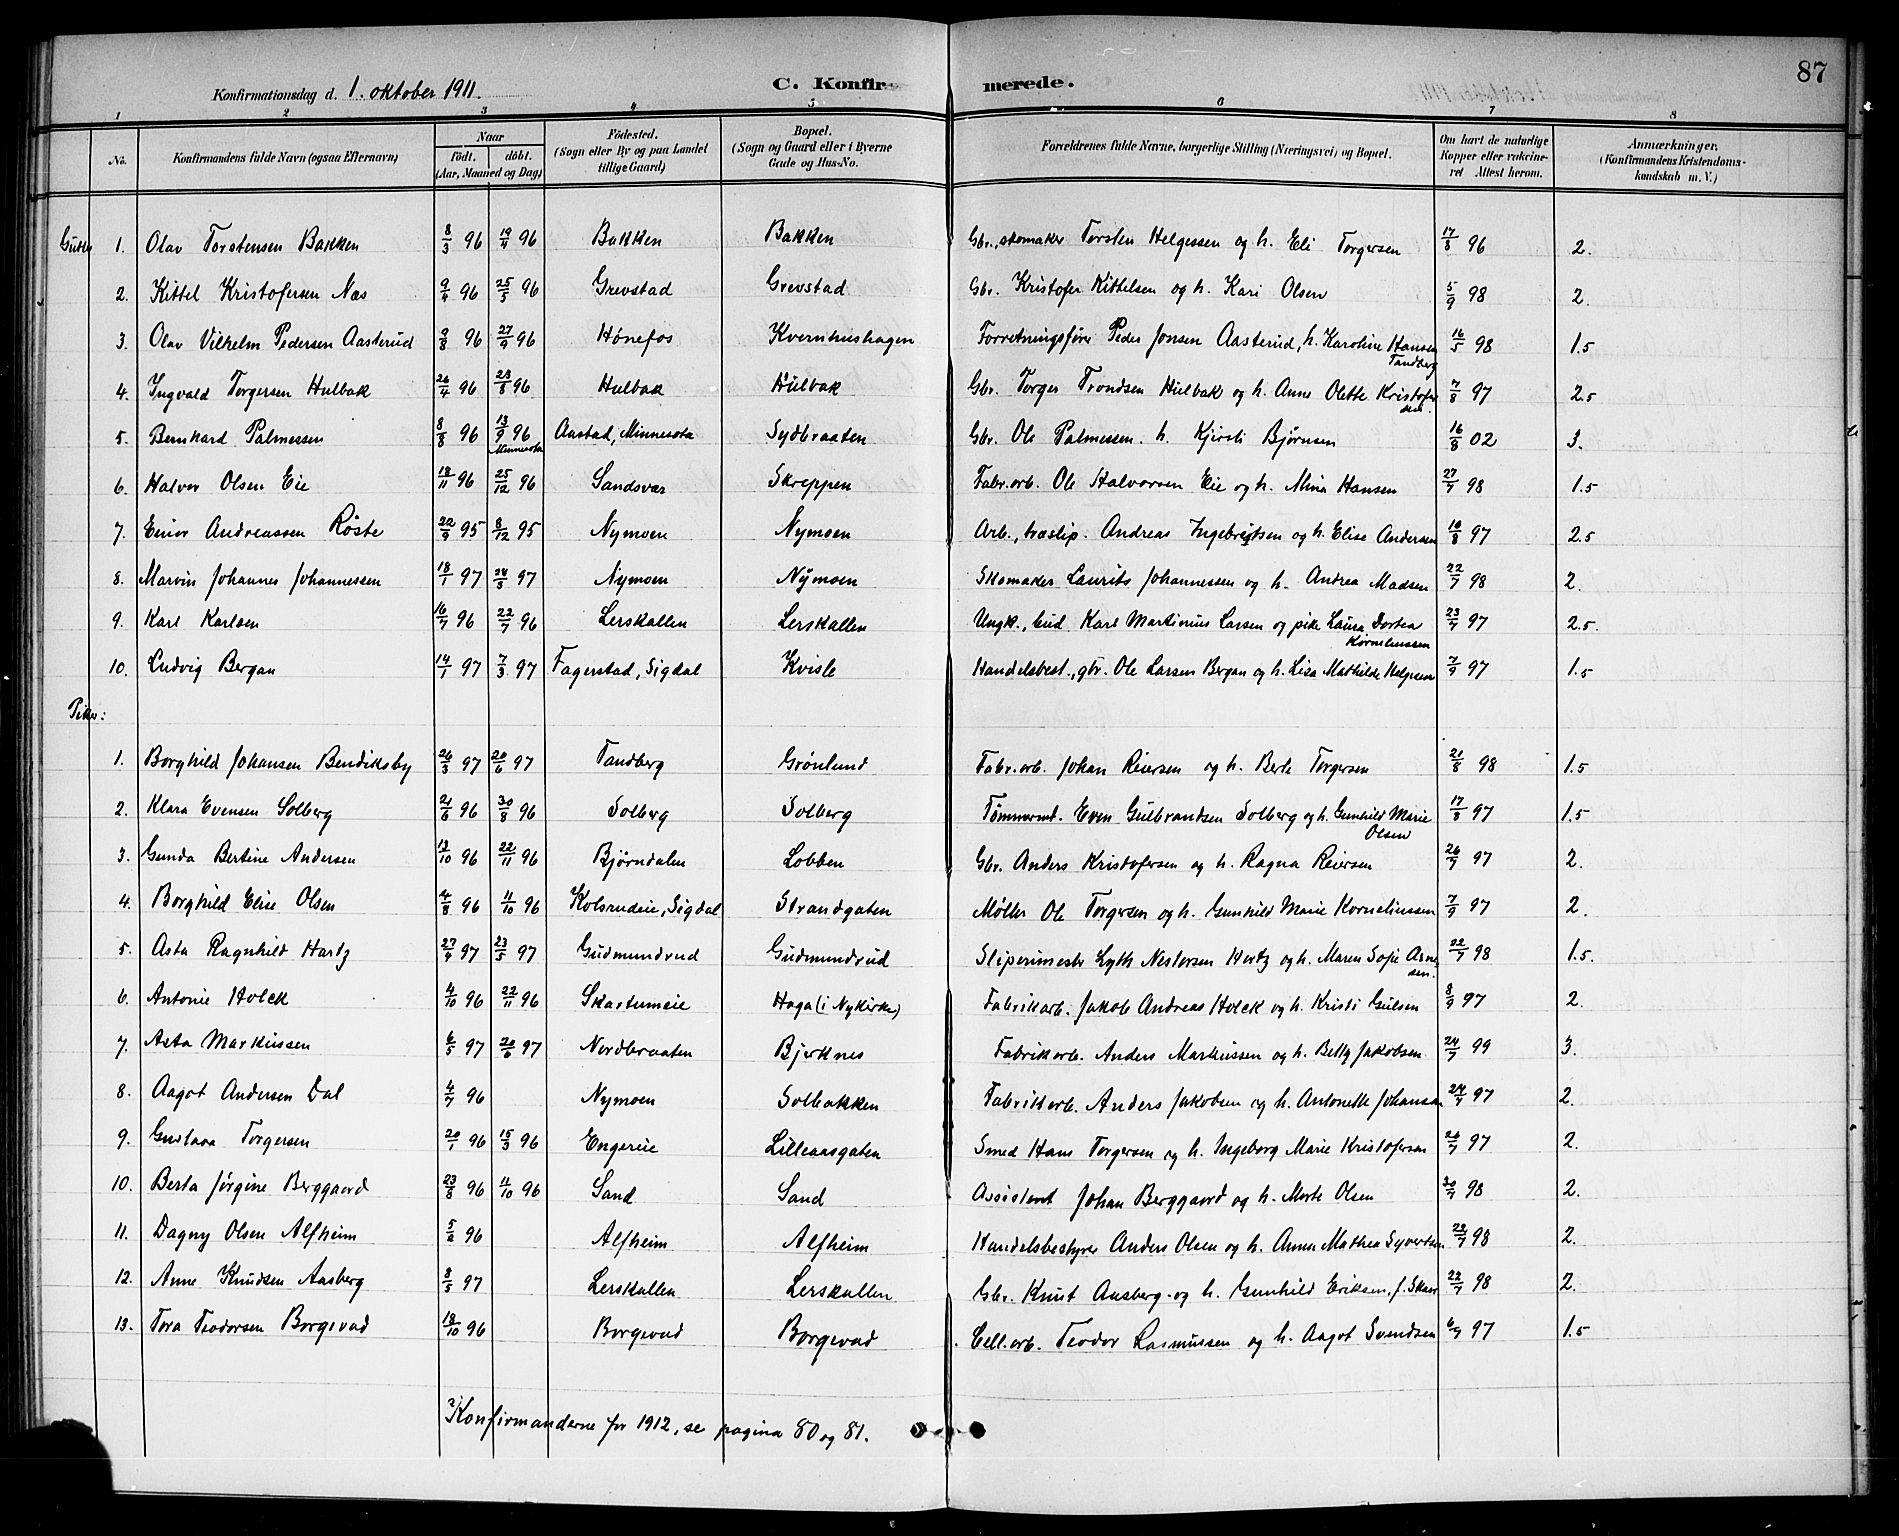 87
Konfirmationsdag d. 1. oktober 1911. C. Konfirmerede.
1 2 3 4 5 6 7 8
No. Konfirmandens fulde Navn (ogsaa Efternavn) Naar födt. döbt. (Aar, Maaned og Dag) Födested. (Sogn eller By og paa Landet tillige Gaard) Bopæl. (Sogn og Gaard eller i Byerne Gade og Hus-No. Forældrenes fulde Navne, borgerlige Stilling (Næringsvei) og Bopæl. Om havt de naturlige Kopper eller vakcineret Attest herom. Anmærkninger. (Konfirmandens Kristendomskundskab m. V.)
Gutter 1. Olav Torstensen Bakken 8/3 96 19/4 96 Bakken Bakken Gbr., skomaker Torsten Helgessen og h. Eli Torgersen 17/8 96 2.
2. Kittel Kristofersen Næs 9/4 96 25/5 96 Grevstad Grevstad Gbr. Kristofer Kittelsen og h. Kari Olsen 5/9 98 2.
3. Olav Vilhelm Pedersen Aasterud 9/8 96 27/9 96 Hønefos Kvernhushagen Forretningsfører Peder Jonsen Aasterud, h. Karoline Hansen Tandberg 16/5 98 1.5
4. Ingvald Torgersen Hulbak 26/4 96 23/8 96 Hulbak Hulbak Gbr. Torger Trondsen Hulbak og h. Anne Olette Kristofersen. 7/8 97 2.5
5. Bernhard Palmessen 8/8 96 13/9 96 Minnesota Aastad, Minnesota Sydbraaten Gbr. Ole Palmessen. h. Kjersti Bjørnsen 16/8 02 3.
6. Halvor Olsen Eie 18/11 96 25/12 96 Sandsvær Skreppen Fabr.arb. Ole Halvorsen Eie og h. Mina Hansen 27/7 98 1.5
7. Einar Andreassen Røste 22/9 95 8/12 95 Nymoen Nymoen Arb., træslip. Andreas Ingebrigtsen og h. Elise Andersen 10/8 97 2.5
8. Marvin Johannes Johannessen 18/1 97 28/3 97 Nymoen Nymoen Skomaker Laurits Johannessen og h. Andrea Madsen 22/7 98 2.
9. Karl Karlsen 16/7 96 22/7 96 Lerskallen Lerskallen Ungk., bud Karl Martinius Larsen og pike Laura Dortea Korneliussen 23/7 97 2.5.
10. Ludvig Bergan 14/1 97 7/3 97 Fagerstad, Sigdal Kvisle Handelsbest., gbr. Ole Larsen Bergan og h. Lisa Mathilde Helgesen 7/9 97 1.5
Piker:
1. Borghild Johansen Bendiksby 26/3 97 20/6 97 Tandberg Grønlund Fabr.arb. Johan Reiersen og h. Berte Torgersen 21/8 98 1.5
2. Klara Evensen Solberg 21/6 96 30/8 96 Solberg Solberg Tømmermd. Even Gulbrandsen Solberg og h. Gunhild Marie Olsen 17/8 97 1.5
3. Gunda Bertine Andersen 13/10 96 22/11 96 Bjørndalen Lobben Gbr. Anders Kristofersen og h. Ragna Reiersen 26/7 97 2.
4. Borghild Elise Olsen 4/8 96 11/10 96 Kolsrudeie, Sigdal Strandgaten Møller Ole Torgersen og h. Gunhild Marie Korneliussen 7/9 97 2.
5. Asta Ragnhild Hartz 27/4 97 23/5 97 Gudmundrud Gudmundrud Sliperimester Lyth Nestersen Hertz og h. Maren Sofie Arnesen. 22/7 98 1.5.
6. Antonie Holck 4/10 96 22/11 96 Skartumeie Haga (i Nykirke) Fabrikarb. Jakob Andreas Holck og h. Kristi Gulsen 8/9 97 2.
7. Asta Markussen 6/5 97 20/6 97 Nordbraaten Bjerknes Fabrikarb. Anders Markussen og h. Betty Jakobsen 24/7 99 3.
8. Aagot Andersen Dal 4/7 96 Nymoen Solbakken Fabrikarb. Anders Jakobsen og h. Antonette Johansen 24/7 97 2.
9. Gustava Torgersen 20/1 96 15/3 96 Engereie Lilleaasgaten Smed Hans Torgersen og h. Ingeborg Marie Kristofersen 26/7 97 2.
10. Berta Jørgine Berggaard 23/8 96 11/10 96 Sand Sand Assistent Johan Berggaard og h. Marte Olsen 30/7 98 2.
11. Dagny Olsen Alfheim 96 Alfheim Alfheim Handelsbestyrer Anders Olsen og h. Anna Mathea Syvertsen 22/7 98 2.
12. Anne Knudsen Aasberg 8/5 97 Lerskallen Lerskallen Gbr. Knut Aasberg og h. Gunhild Eriksen, f. Skare 22/7 98 2.
13. Tora Teodorsen Borgevad 18/10 96 Borgevad Borgevad Cell.arb. Teodor Rasmussen og h. Aagot Svendsen 6/7 97 1.5
Konfirmanderne for 1912, se pagina 80 og 81.